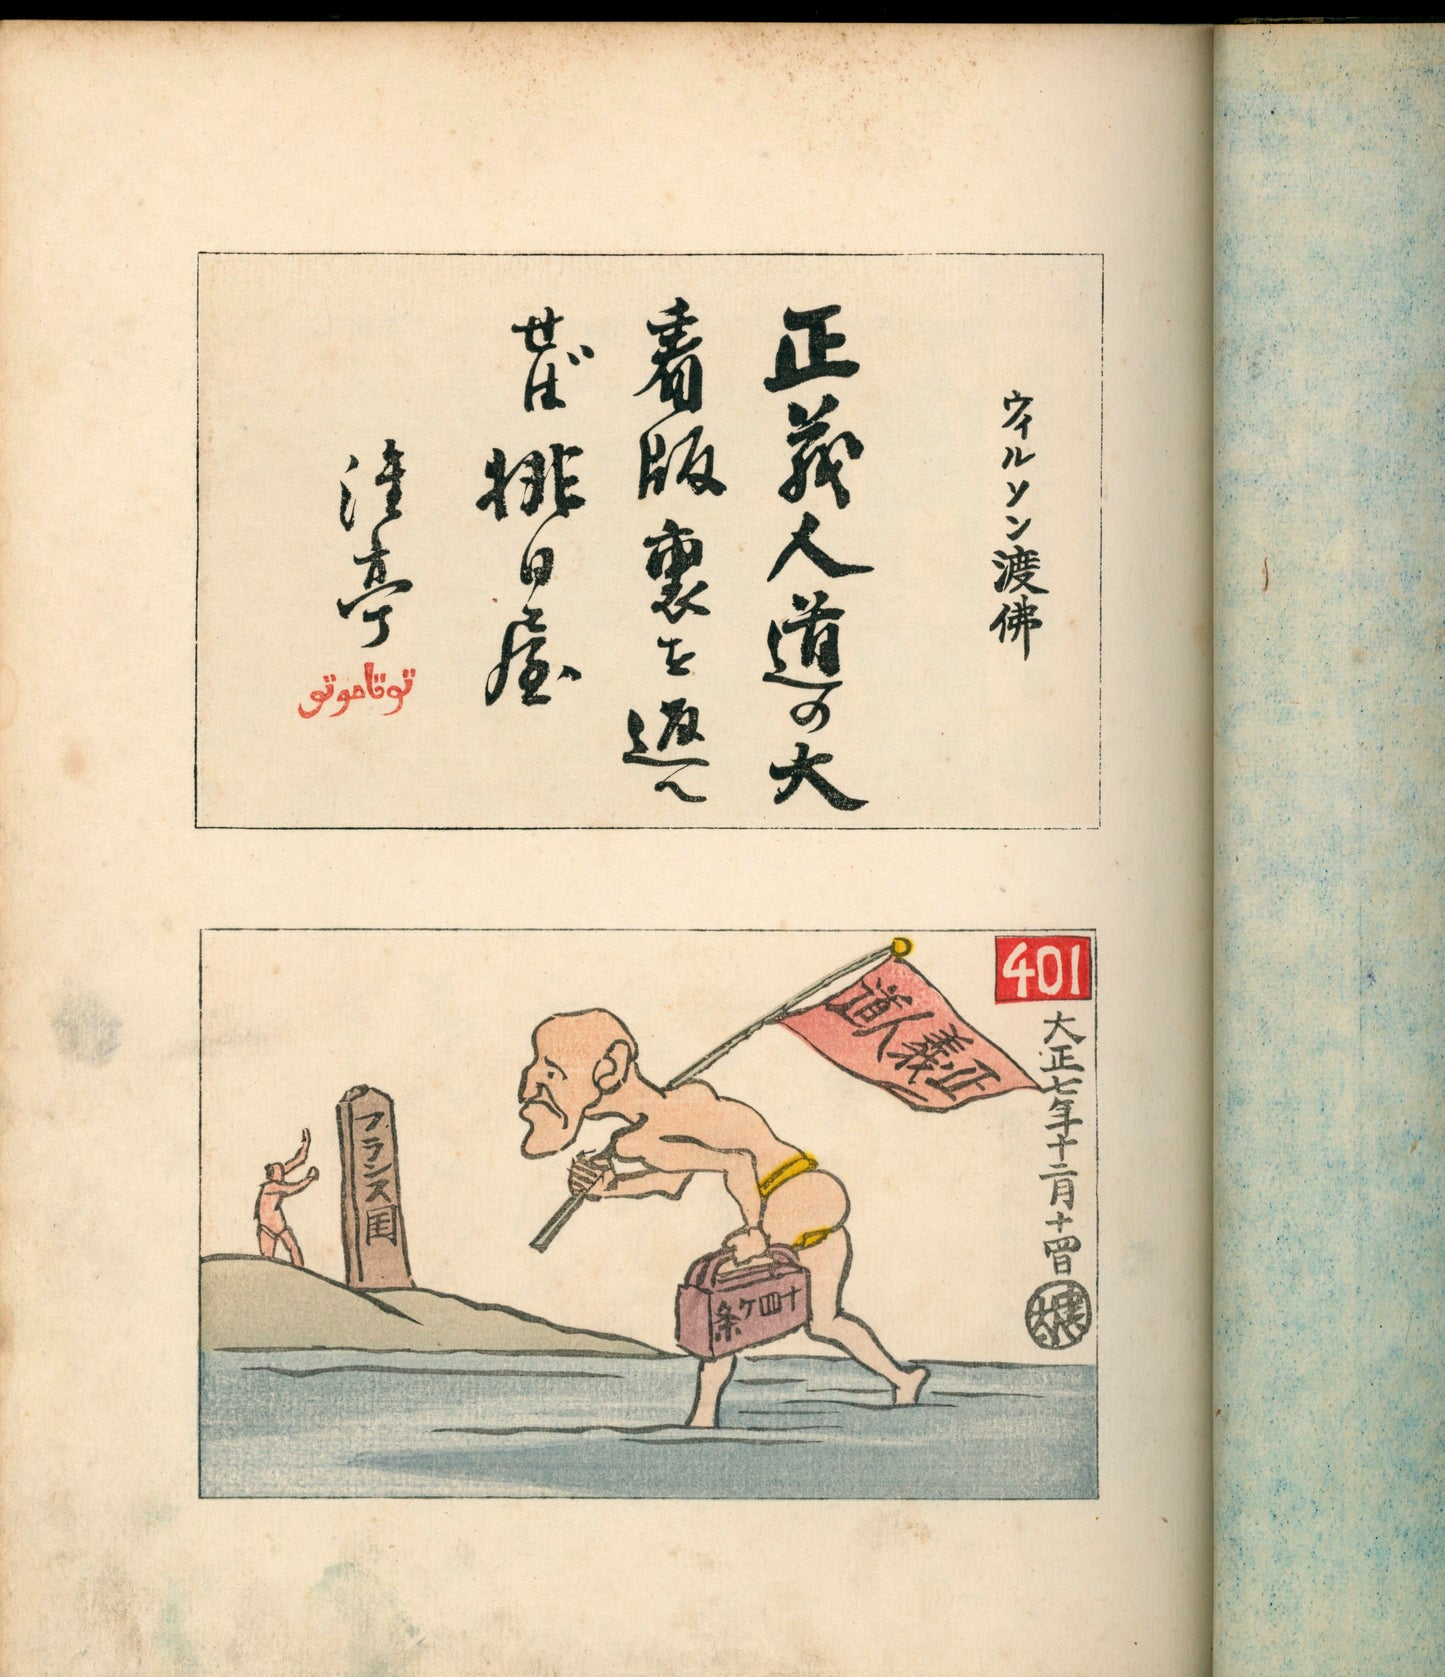 ウイルソン渡佛
正義人道の大
看版裏を返へ
せば排日屋
401
大正七年十二月十四日
正義人道
フランス国
十四ケ条